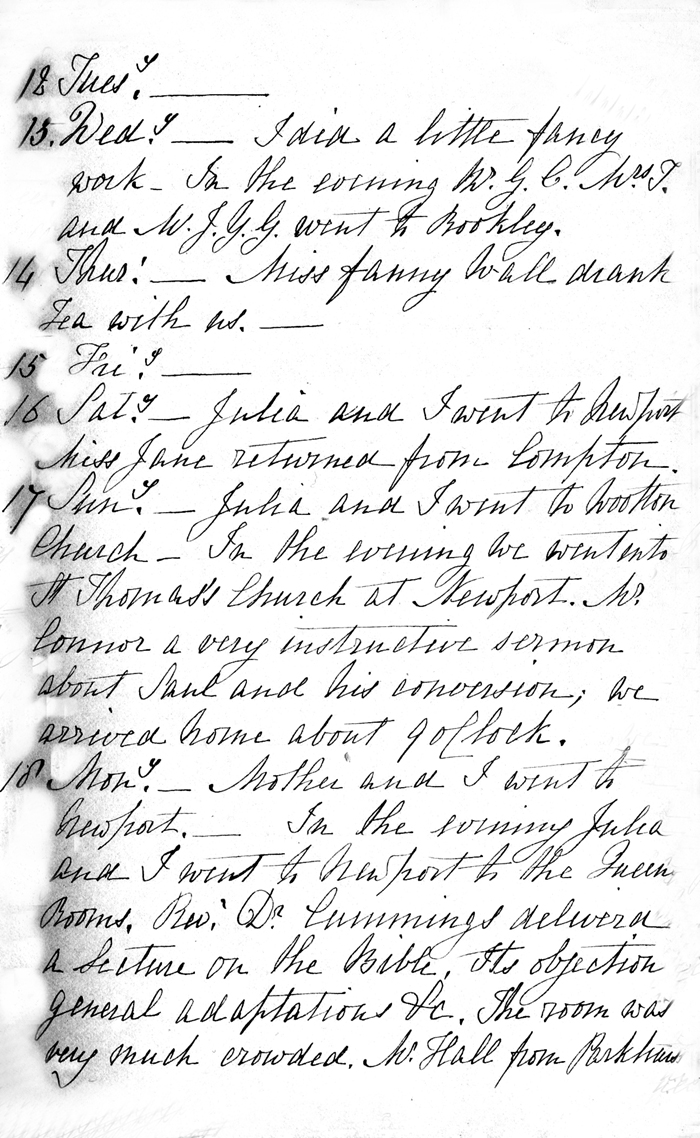 12 Tuesy. ———
13. Wedy. — I did a little fancy
work — In the evening Mr. G. C. Mrs T.
and M. J. Y. G. went to Rookley.
14 Thur: — Miss fanny Wall drank
Tea with us. ——
15 Friy. ———
16 Saty. — Julia and I went to Newport
Miss Jane returned from Compton.
17 Suny. — Julia and I went to Wootton
Church — In the evening we went into
St Thomas's Church at Newport. Mr.
Connor a very instructive sermon
about Saul and his conversion; we
arrived home about 9 oClock.
18 Mony. — Mother and I went to
Newport. — In the evening Julia
and I went to Newport to the Queen
Rooms. Rev. Dr. Cummings deliverd
a Lecture on the Bible. Its objection
general adaptations &c. The room was
very much crowded. Mr. Hall from